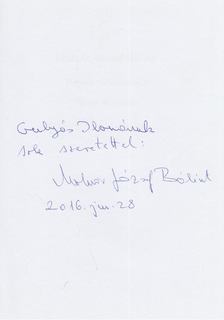 Gulyás Ilonának
sok szeretettel:
Molnár József Bálint
2016. jún. 28